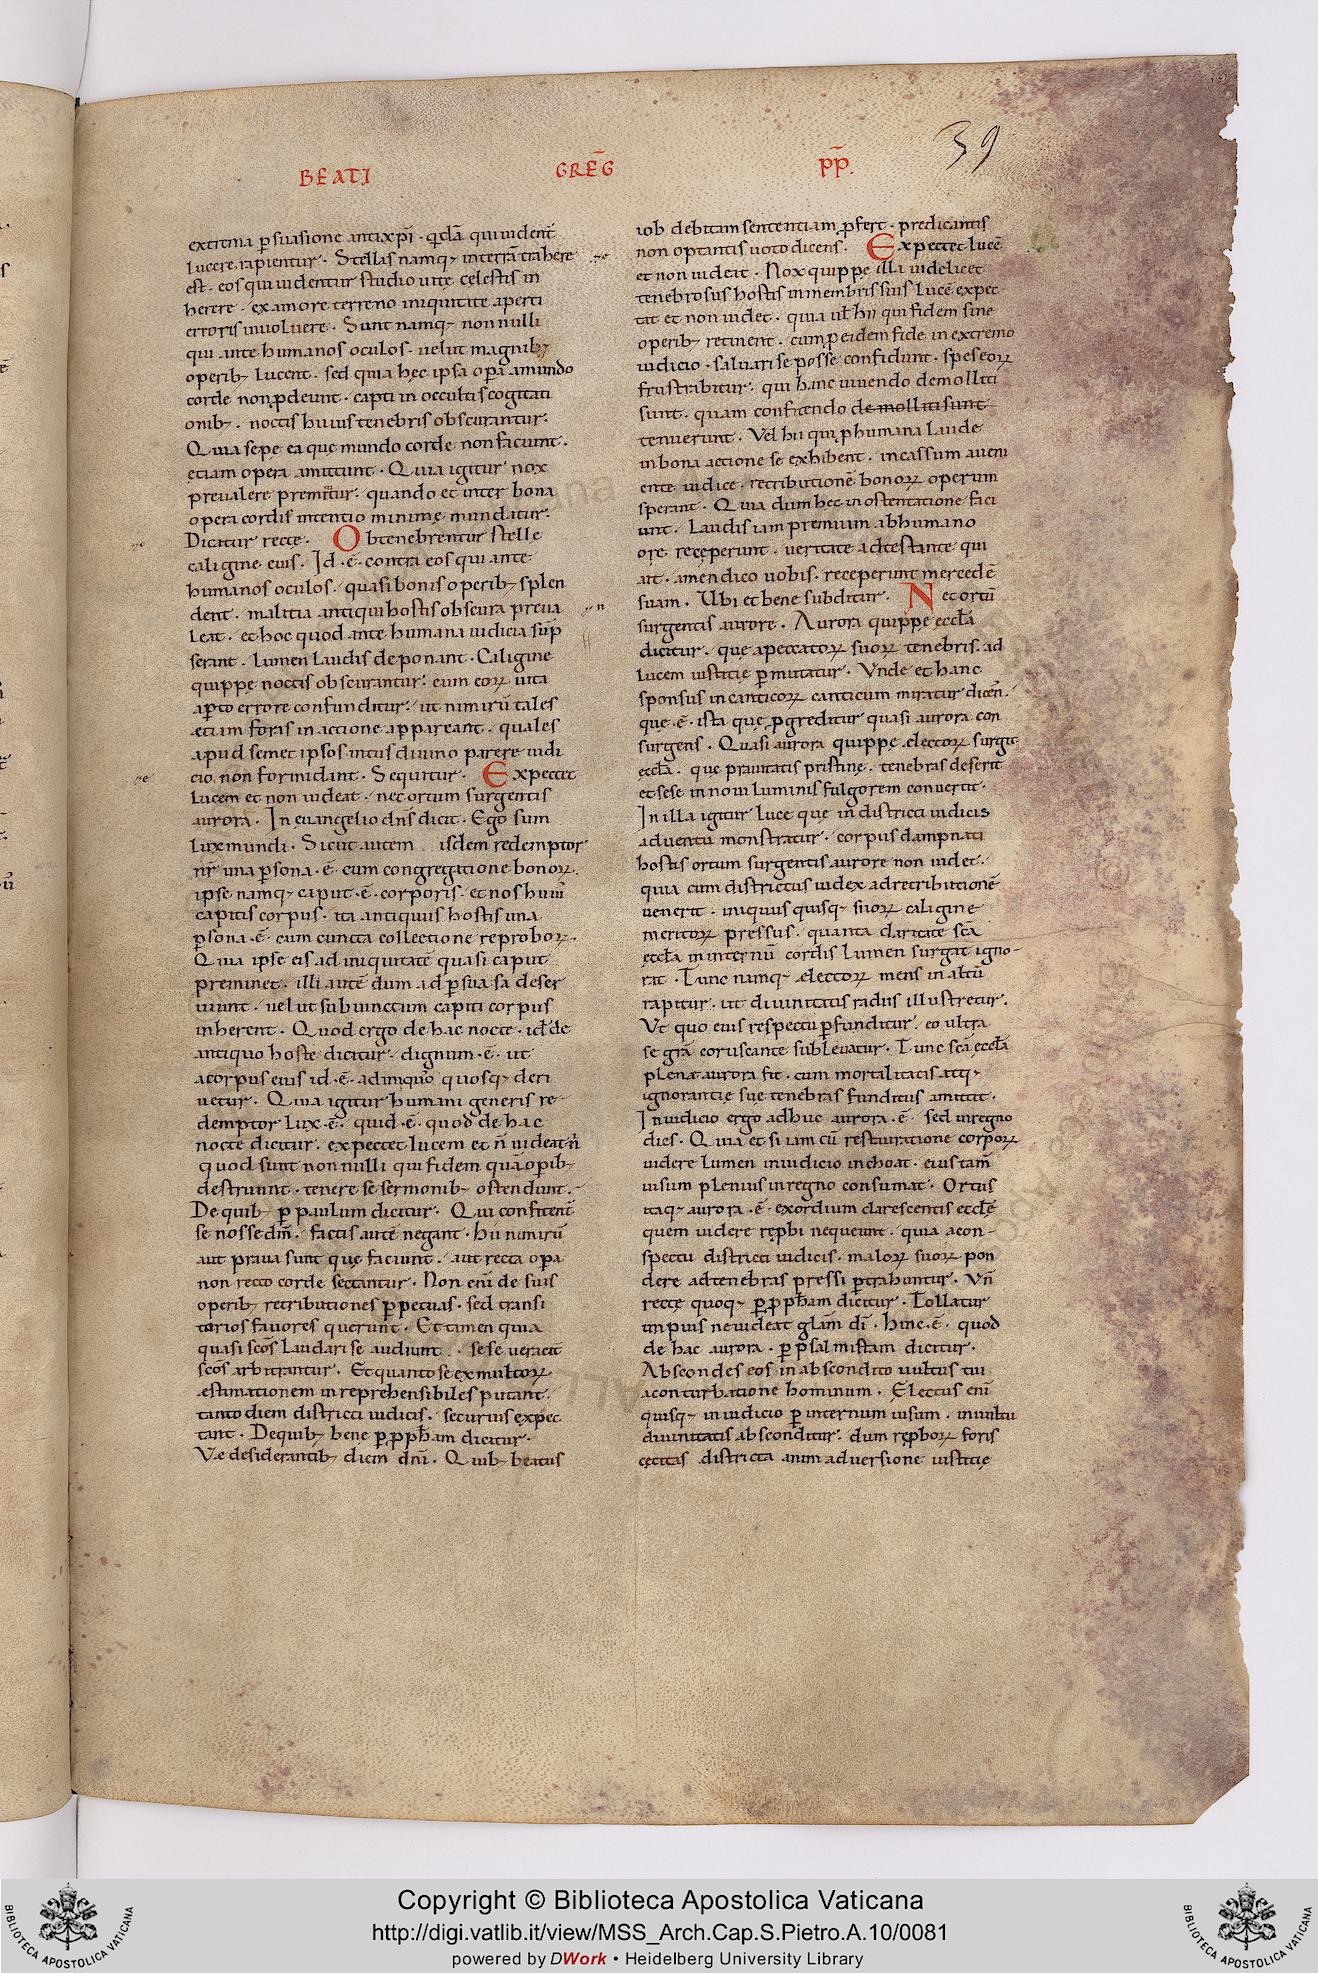 39
BEATI GREḠ P̄P̄.
extrema p̱suasione antix̄pi · qdā qui uident̄
lucere, rapientur · Stellas namq; in terrā trahere
est · eos qui uidentur studio uitę celestis in
herere · ex amore terreno iniquitate aperti
erroris inuoluere · Sunt namq; non nulli
qui ante humanos oculos · uelut magnib;
operib; lucent · sed quia hęc ipsa op̱a a mundo
corde non p̱deunt · capti in occultis cogitati
onib; · noctis huius tenebris obscurantur ·
Quia sepe ea que mundo corde non faciunt ·
etiam opera amittunt · Quia igitur nox
preualere premittur · quando et inter bona
opera cordis intentio minime mundatur ·
Dicatur recte · Obtenebrentur stelle
caligine eius · Id · ē · contra eos qui ante
humanos oculos · quasi bonis operib; splen
dent · malitia antiqui hostis obscura preua
leat · et hoc quod ante humana iudicia sūp
serant · lumen laudis deponant · Caligine
quippe noctis obscurantur · cum eoꝝ uita
ap̱to errore confunditur · ut nimirū tales
etiam foris in actione appareant · quales
apud semet ipsos intus diuino parere iudi
cio non formidant · Sequitur · Expectet
lucem et non uideat · nec ortum surgentis
aurora · In euangelio dn̄s dicit · Ego sum
lux mundi · Sicut autem isdem redemptor
nr̄ una p̱sona · ē · cum congregatione bonoꝝ ·
ipse namq; caput · ē · corporis · et nos huiu᷒
capitis corpus · ita antiquus hostis una
p̱sona · ē · cum cuncta collectione reproboꝝ ·
Quia ipse eis ad iniquitatē quasi caput
preminet · illi autē dum ad p̱suasa deser
uiunt · uelut subiunctum capiti corpus
inherent · Quod ergo de hac nocte · id ē de
antiquo hoste dicitur · dignum · ē · ut
a corpus eius id · ē · ad iniquo᷒ quosq; deri
uetur · Quia igitur humani generis re-
demptor lux · ē · quid · ē · quod de hac
nocte dicitur · expectet lucem et n̄ uideat n̄
quod sunt non nulli qui fidem quā op̱ib;
destruunt · tenere se sermonib; ostendunt ·
De quib; p̱ paulum dicitur · Qui confitent̄
se nosse dm̄ · factis autē negant · Hii nimirū
aut praua sunt quę faciunt · aut recta op̱a
non recto corde sectantur · Non eni᷒ de suis
operib; retributiones p̱petuas · sed transi
torios fauores querunt · Et tamen quia
quasi sc̄os laudari se audiunt · sese ueracit̄
sc̄os arbitrantur · Et quanto se ex multoꝝ
estimationem inreprehensibiles putant ·
tanto diem districti iudicis · securius expec
tant · De quib; bene p̱ pph̄am dicitur ·
Ve desiderantib; diem dn̄i · Quib; beatus
iob debitam sententiam p̱fert · predicantis
non optantis uoto dicens · Expectet lucē
et non uideat · Nox quippe illa uidelicet
tenebrosus hostis in membris suis lucē expec
tat et non uidet · quia uł hii qui fidem sine
operib; retinent · cum p̱ eidem fide in extremo
iudicio · saluari se posse confidunt · spes eoꝝ
frustrabitur · qui hanc uiuendo demoliti
sunt · quam confitendo demolliti sunt
tenuerunt · Vel hii qui p̱ humana laude
in bona actione se exhibent · incassum aueni
ente iudice · retributionē bonoꝝ operum
sperant · Quia dum hec in ostentatione faci
unt · Laudis iam premium ab humano
ore receperunt · ueritate adtestante qui
ait · amen dico uobis · receperunt mercedē
suam · Ubi et bene subditur · Nec ortū
surgentis aurore · Aurora quippe eccl̄a
dicitur · quę a peccatoꝝ suoꝝ tenebris · ad
lucem iustitię p̱mutatur · Vnde et hanc
sponsus in canticoꝝ canticum miratur dicen᷒ ·
que · ē · ista quę p̱greditur quasi aurora con
surgens · Quasi aurora quippę electoꝝ surgit
ęccl̄a · que prauitatis pristinę · tenebras deserit
et sese in noui luminis fulgorem conuertit ·
In illa igitur luce que in districti iudicis
aduentu monstratur · corpus dampnati
hostis ortum surgentis aurore non uidet ·
quia cum districtus iudex ad retributionē
uenerit · iniquus quisq; suoꝝ caligine
meritoꝝ pressus · quanta claritate sc̄a
ęccl̄a in internū cordis lumen surgat igno-
rat · Tunc namq; electoꝝ mens in altū
rapitur · ut diuinitatis radiis illustretur ·
Vt quo eius respectu p̱funditur · eo ultra
se gr̄a coruscante subleuatur · Tunc sc̄a eccl̄a
plena aurora fit · cum mortalitatis atq;
ignorantię suę tenebras funditus amittit ·
In iudicio ergo adhuc aurora · ē · sed in regno
dies · Quia et si iam cū restauratione corpoꝝ
uidere lumen in iudicio inchoat · eius tam̄
uisum plenius in regno consumat · Ortus
itaq; aurora · ē · exordium clarescentis eccl̄ę
quem uidere rep̱bi nequeunt · quia a con-
spectu districti iudicis · maloꝝ suoꝝ pon
dere ad tenebras pressi p̱trahuntur · Vn̄
recte quoq; p̱ pph̄am dicitur · Tollatur
impius ne uideat glām dī · Hinc · ē · quod
de hac aurora · p̱ psalmistam dicitur ·
Abscondes eos in abscondito uultus tui
a conturbatione hominum · Electus eni᷒
quisq; in iudicio p̱ internum uisum · in uultu
diuinitatis absconditur · dum rep̱boꝝ foris
cęcitas districta animaduersione iustitię
Copyright © Biblioteca Apostolica Vaticana
http://digi.vatlib.it/view/MSS_Arch.Cap.S.Pietro.A.10/0081
powered by DWork • Heidelberg University Library
BIBLIOTECA APOSTOLICA VATICANA
BIBLIOTECA APOSTOLICA VATICANA